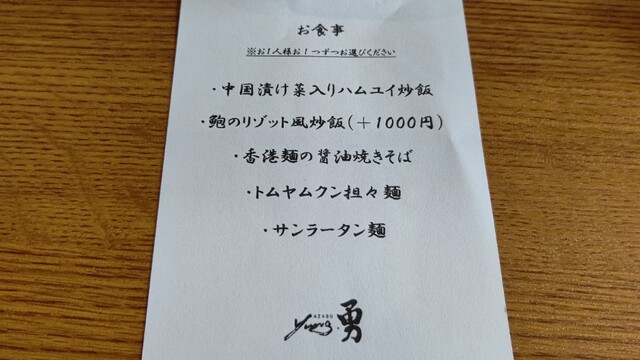 お食事
※お1人様お1つずつお選びください
・中国漬け菜入りハムユイ炒飯
・鮑のリゾット風炒飯(＋1000円)
・香港麺の醤油焼きそば
・トムヤムクン担々麺
・サンラータン麺
AZABU
Yung 勇